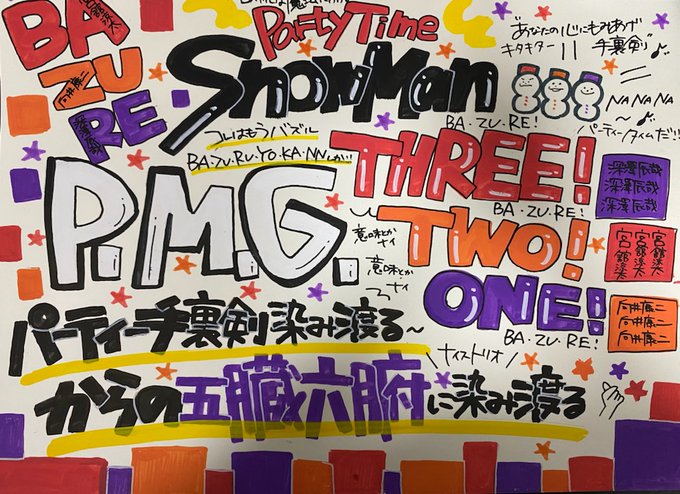 BA
ZU
RE
宮舘涼太
向井康二
深澤辰哉
Party Time
SnowMan
"あなたの心にもみあげ
手裏剣"♪
キタキター||
NANANA
~♪
パーティータイムだ!!
コレはもうバズル
BA・ZU・RU・YO・KA・NNしか!!
BA・ZU・RE!
THREE!
BA・ZU・RE!
TWO!
ONE!
BA・ZU・RE!
P.M.G.
意味とか
ナイ
意味とか
ナイ
深澤辰哉
深澤辰哉
深澤辰哉
宮舘涼太
宮舘涼太
宮舘涼太
向井康二
向井康二
向井康二
パティー手裏剣染み渡る~
\ナイストリオ/
からの五臓六腑に染み渡る